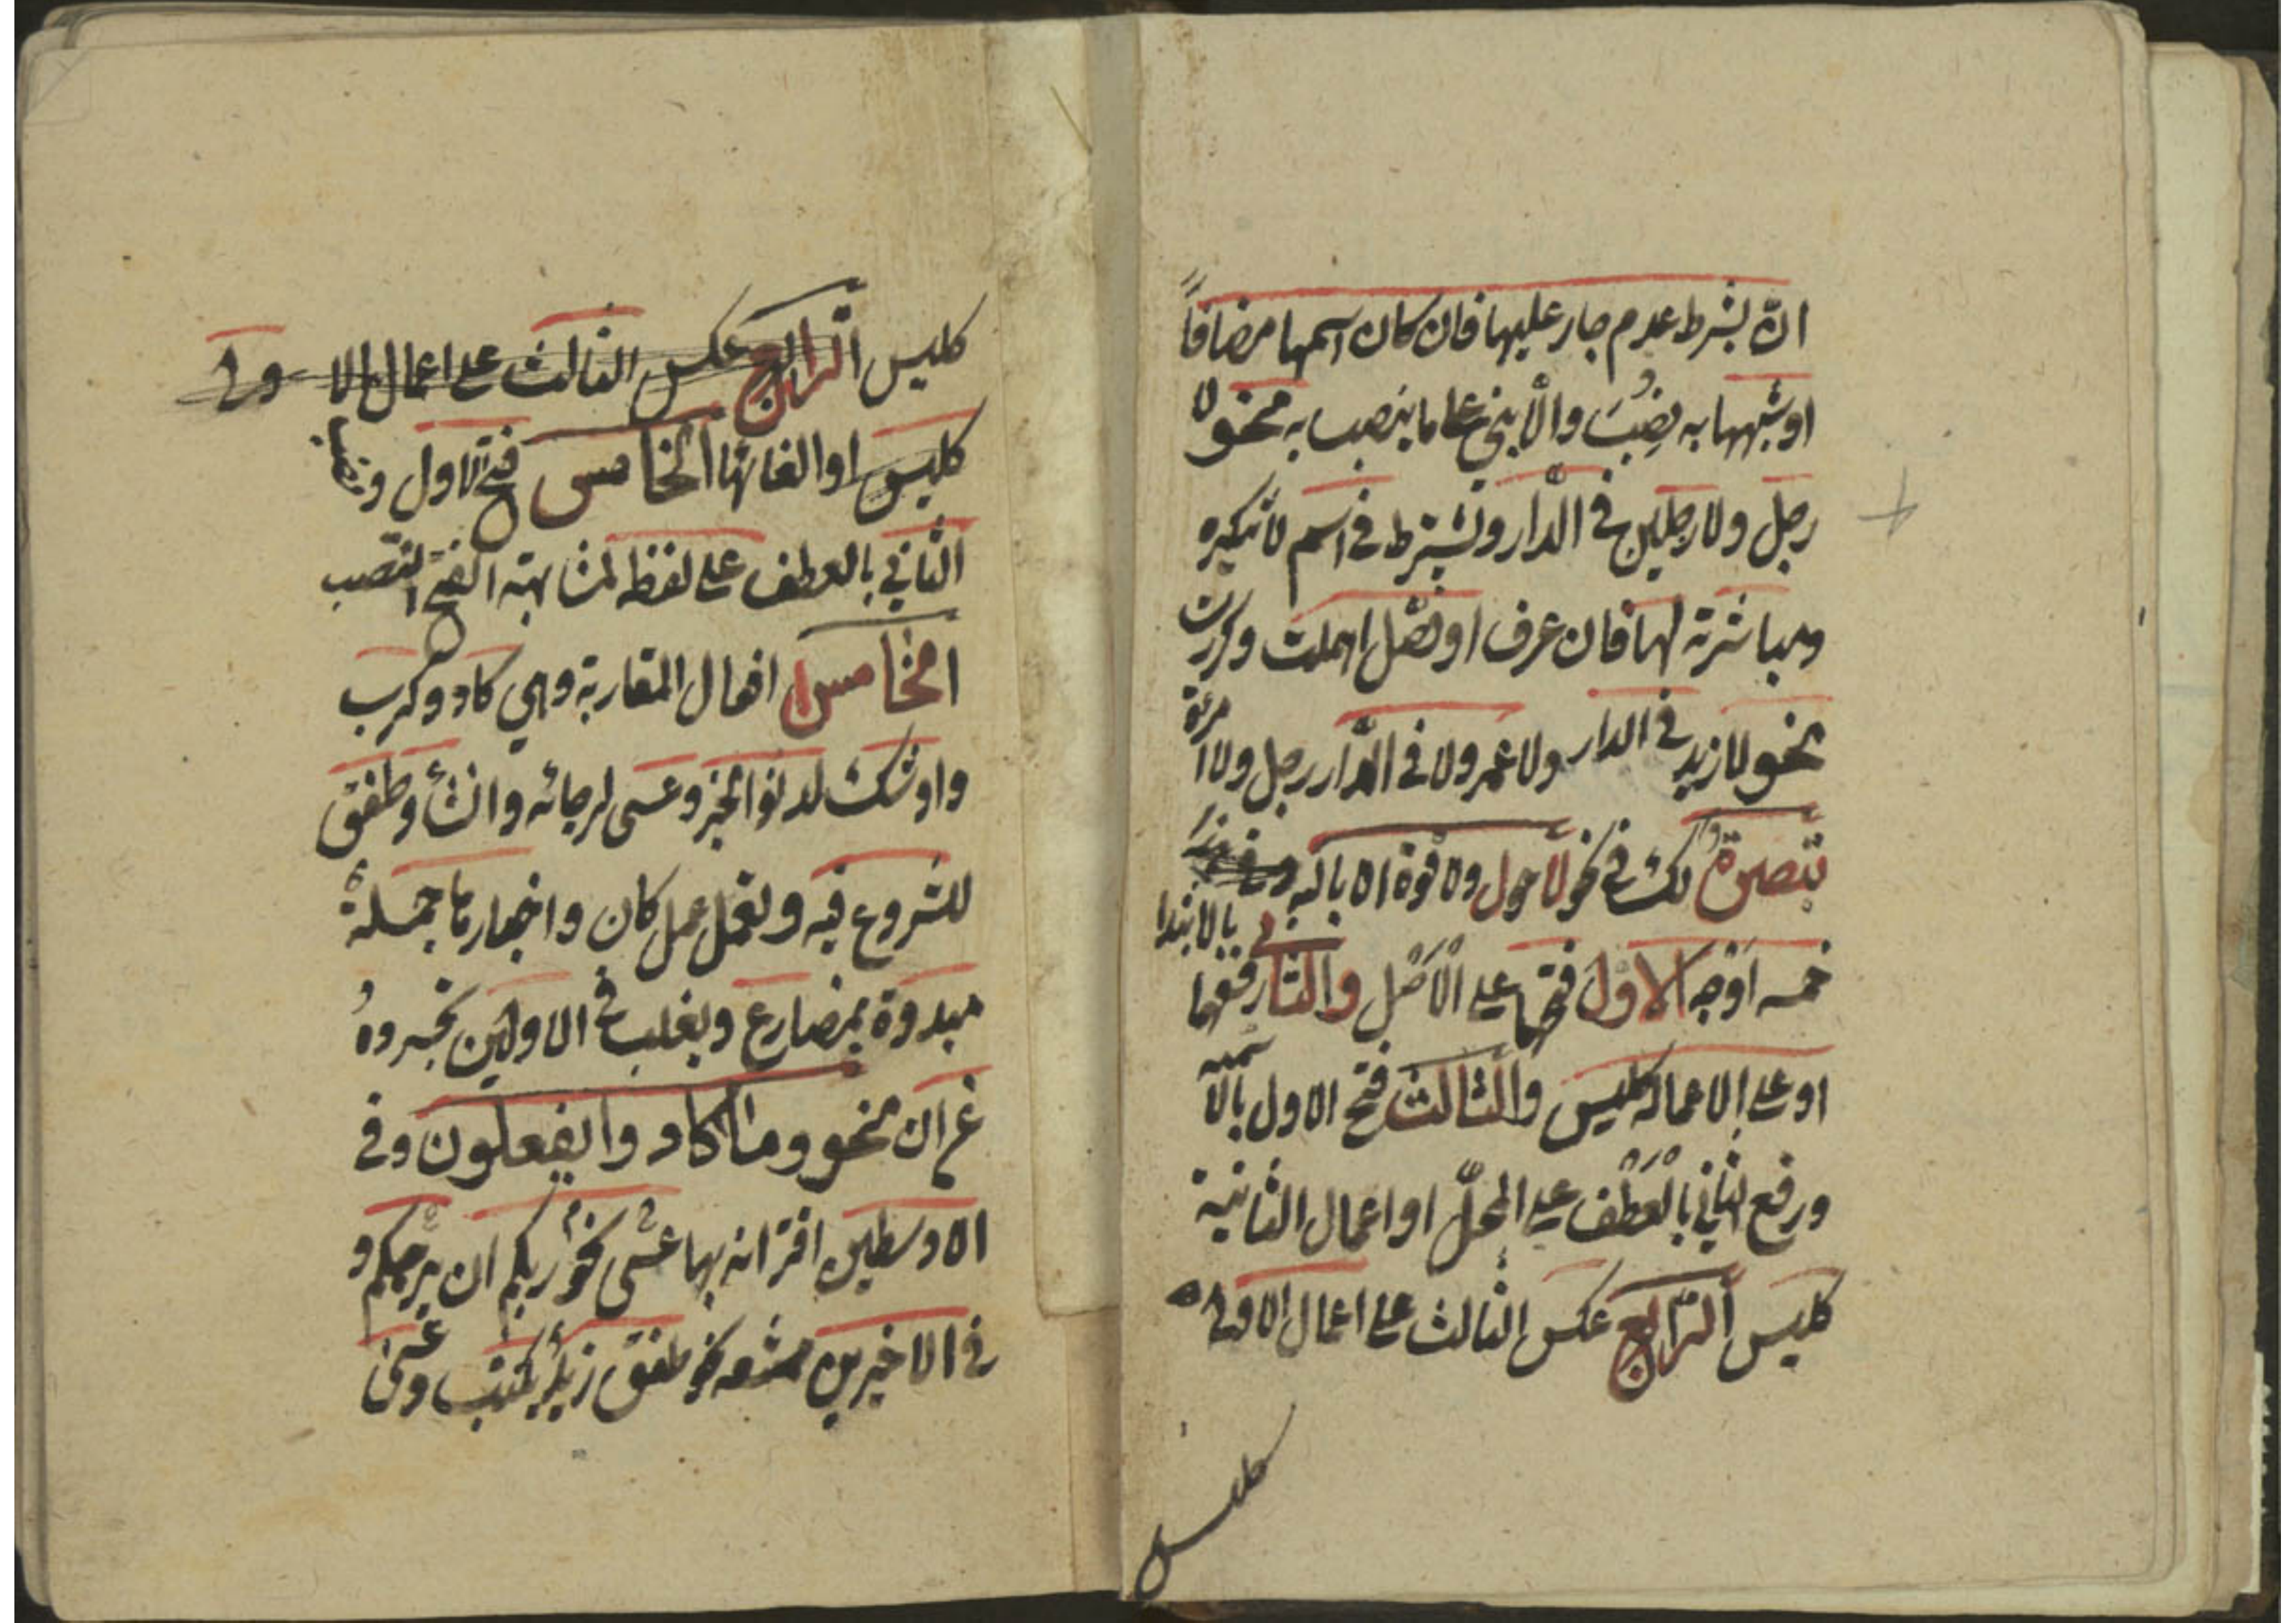 انّ بشرط عدم جار عليها فان كان اسمها مضافاً
او شبهها به نصِبُ والّا بني علی ما ينصب به نحو لا
رجل ولا رجلين في الدّار ويشترط في اسم لا تنكيره
ومباشرته لها فان عرف او فصّل اهملت وكررت
نحو لا زيد في الدار ولا عمرو ولا في الدّار رجل ولا امرئة
تبصرة ولك في نحو لا حول ولا قوة الا بالله
خمسه اوجه الاول فتحهما علی الاصل والثاني رفعهما بالابتدا
او علی الاعمال كليس والثالث فتح الاول
ورفع الثاني بالعطف علی المحلّ او اعمال الثانية
كليس الرّابع عكس الثالث علی اعمال الاولی
كليس
كليس الرابع عكس الثالث علی اعمال الا ولی
كليس او الغائها الخامس فتح الاول ونصب
الثاني بالعطف علی لفظه لمشابهته الفتح النصب
الخامس افعال المقاربة وهي كاد وكرب
واوشك لدنو الخبر وعسی لرجائه وانشأ وطفق
للشروع فيه وتعمل عمل كان واخبارها جملة
مبدوة بمضارع ويغلب في الاولين تجرده
عن ان نحو وما كادوا يفعلون وفي
الاوسطين اقترانه بها عسی نحو ربكم ان يرحمكم و
في الاخيرين ممتنعه نحو طفق زيد يكتب وعسی